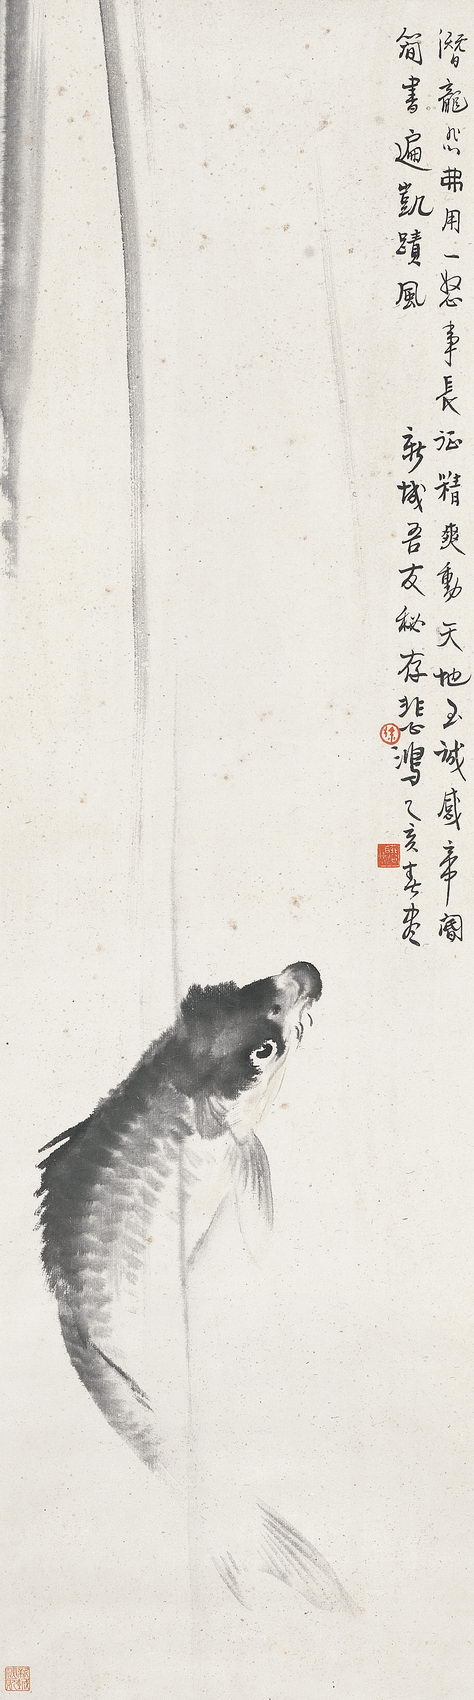 潛龍悲弗用一怒事長征精爽動天地至誠感帝閽
簡書遍凱蹟風
新城吾友秘存悲鴻乙亥春盡